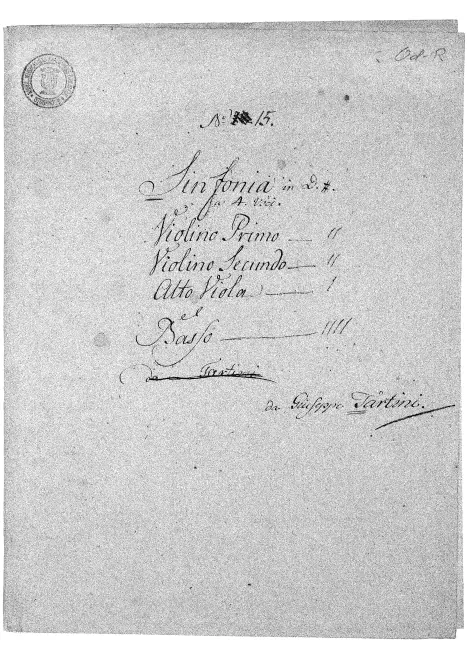 Od-R
No: 15.
Sinfonia in D.#.
Violino Primo — 11
Violino Secundo — 11
Alto Viola — 1
el
Basso — 1111
da Tartini
da Giuseppe Tartini.